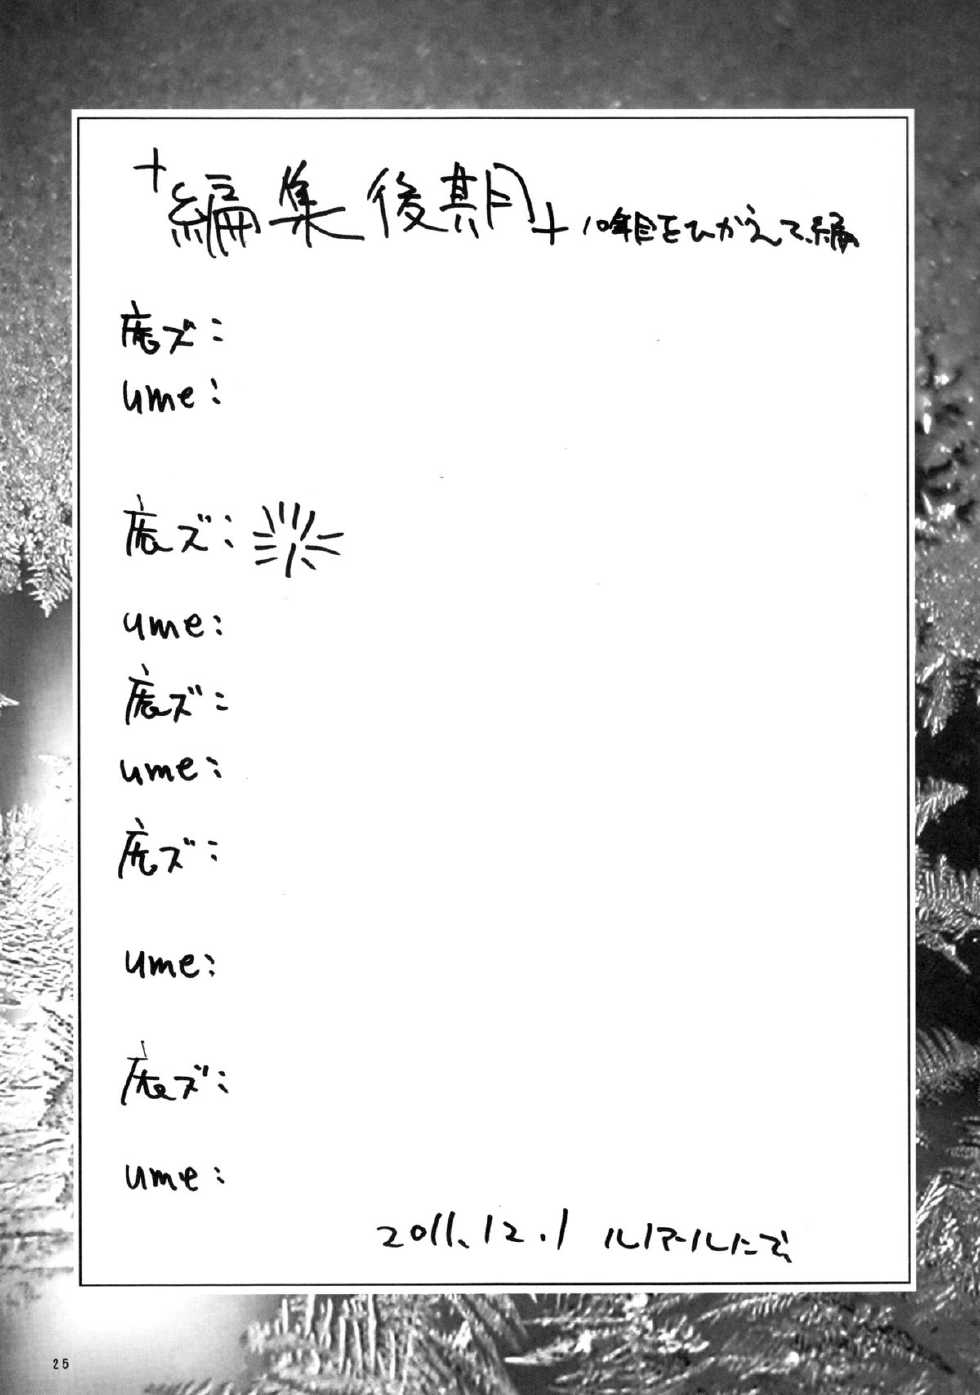 +編集後期+ 10年目をひかえて編
鹿ズ:
ume:
鹿ズ:
ume:
鹿ズ:
ume:
鹿ズ:
ume:
鹿ズ:
ume:
2011.12.1 ルノアールにて
25